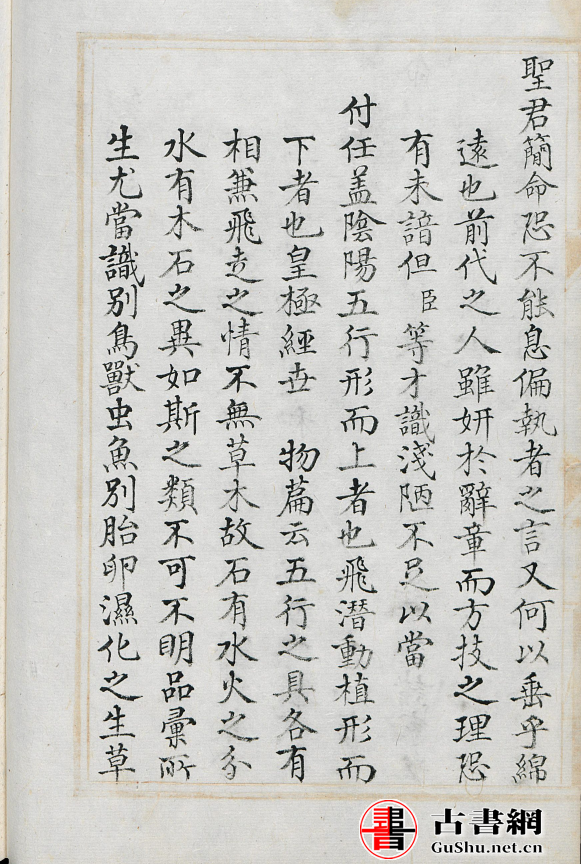 聖君簡命恐不能息偏執者之言又何以垂乎綿
遠也前代之人雖妍於辭章而方技之理恐
有未諳但臣等才識淺陋不足以當
付任盖陰陽五行形而上者也飛潛動植形而
下者也皇極經世 物篇云五行之具各有
相兼飛走之情不無草木故石有水火之分
水有木石之異如斯之類不可不明品彙所
生尤當識別鳥獸虫魚別胎卵濕化之生草
古書網
GuShu.net.cn